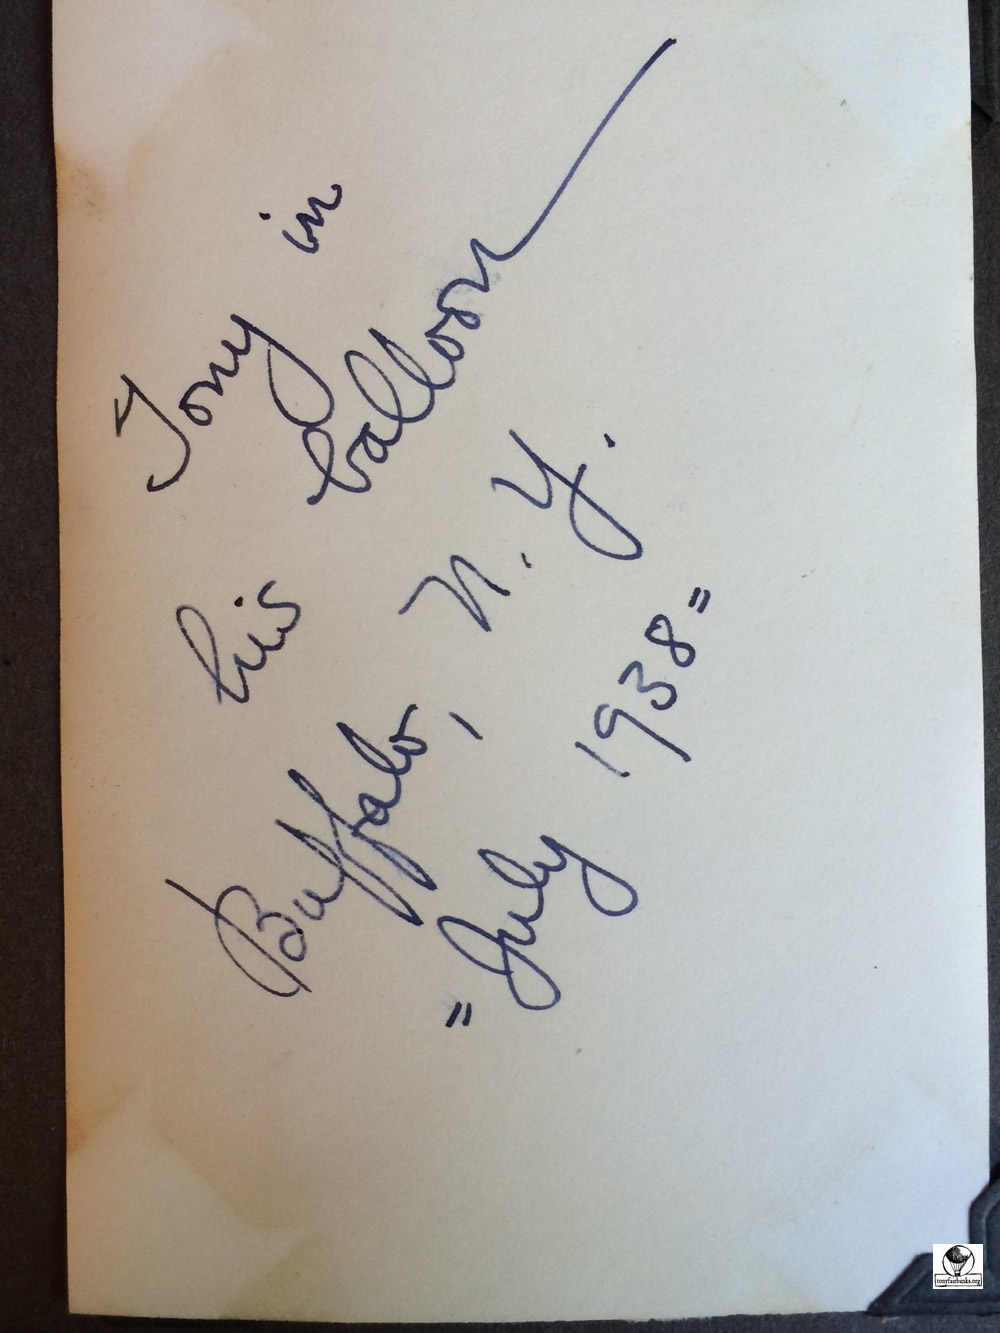 Tony in
his balloon
Buffalo, N.Y.
= July 1938 =
tonyfairbanks.org